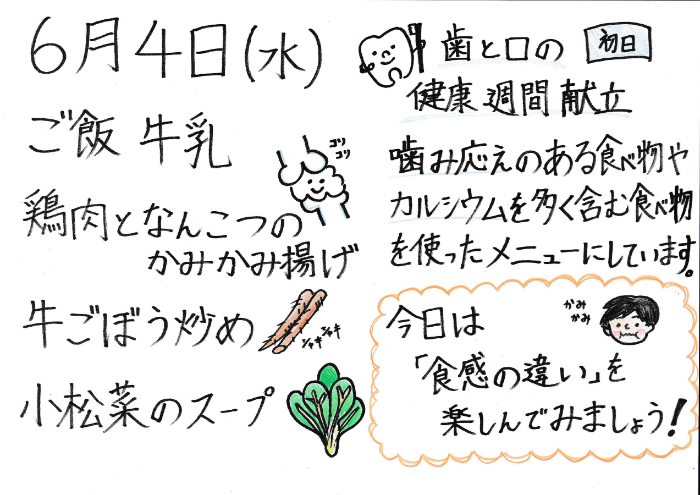 6月4日(水)
ご飯 牛乳
鶏肉となんこつの
かみかみ揚げ
コリ
コリ
牛ごぼう炒め
シャキ
シャキ
小松菜のスープ
歯と口の 初日
健康週間献立
噛み応えのある食べ物や
カルシウムを多く含む食べ物
を使ったメニューにしています。
今日は
かみ
かみ
「食感の違い」を
楽しんでみましょう!